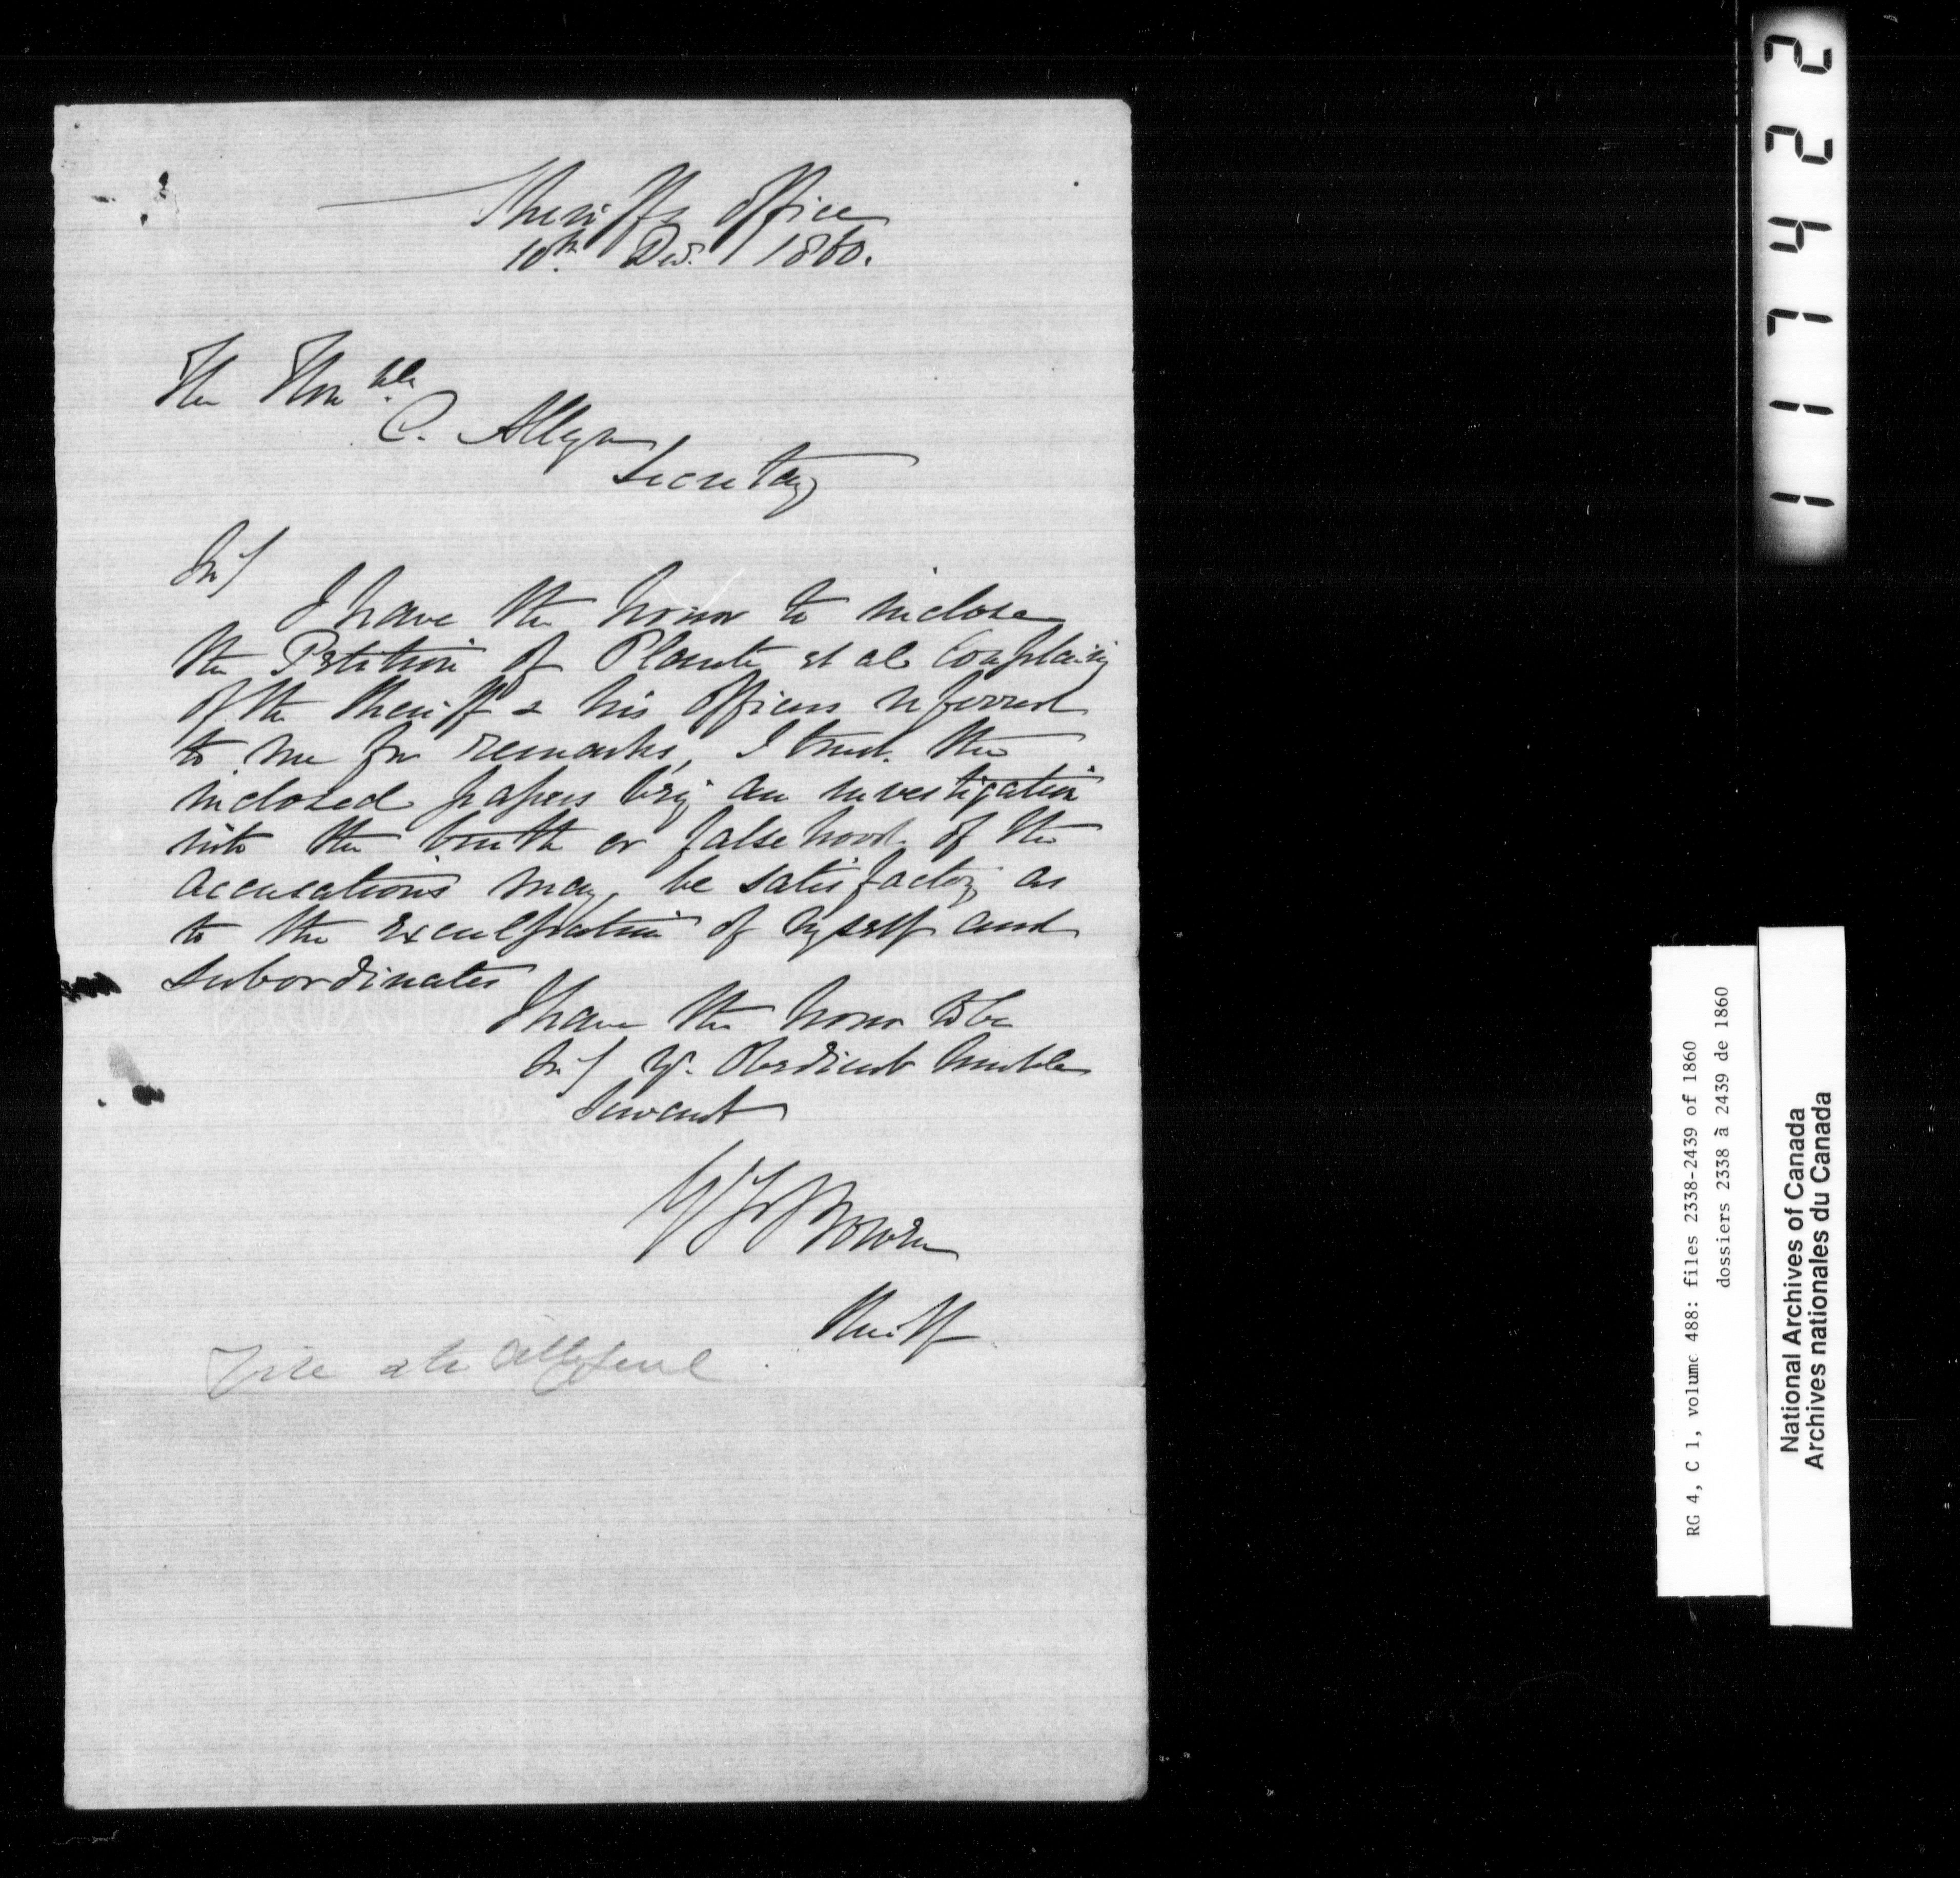 Sheriffs Office
10th. Dec. 1860.
The Honble.
C. Alleyn
Secretary
Sir/
I have the honor to inclose
the Petition of Plante et al complaing
of the Sheriff & his officers referred
to me for remarks, I trust the
inclosed papers being an investigation
into the truth or falsehood of the
accusations may be satisfactory as
to the exculpation of myself and
subordinates
I have the honor to be
Sir/ yr. Obedient humble
Servant
Bowen
Sheriff
117422
RG 4, C 1, volume 488: files 2338-2439 of 1860
dossiers 2338 à 2439 de 1860
National Archives of Canada
Archives nationales du Canada